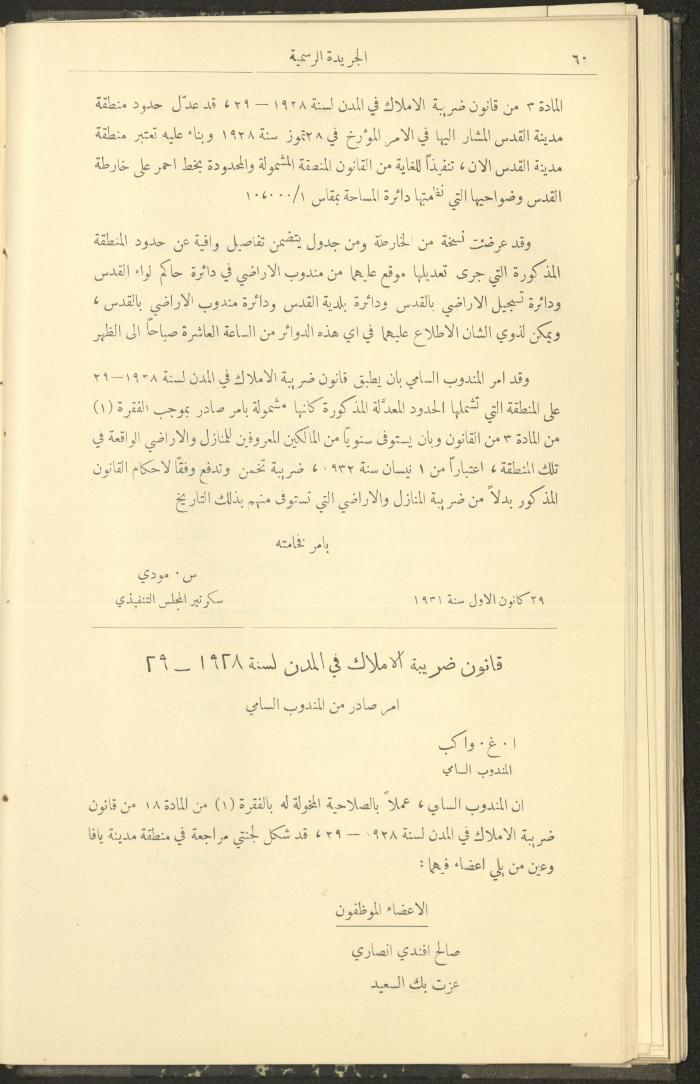 ٦٠ الجريدة الرسمية
المادة ٣ من قانون ضريبة الاملاك في المدن لسنة ١٩٢٨ — ٢٩، قد عدّل حدود منطقة
مدينة القدس المشار اليها في الامر المؤرخ في ٢٨ تموز سنة ١٩٢٨ وبناء عليه تعتبر منطقة
مدينة القدس الان، تنفيذاً للغاية من القانون المنصقة المشمولة والمحدودة بخط احمر على خارطة
القدس وضواحيها التي نظمتها دائرة المساحة بمقاس ١٠،٠٠٠/١
وقد عرضت نسخة من الخارطة ومن جدول يتضمن تفاصيل وافية عن حدود المنطقة
المذكورة التي جرى تعديلها موقع عليهما من مندوب الاراضي في دائرة حاكم لواء القدس
ودائرة تسجيل الاراضي بالقدس ودائرة بلدية القدس ودائرة مندوب الاراضي بالقدس،
ويمكن لذوي الشان الاطلاع عليهما في اي هذه الدوائر من الساعة العاشرة صباحاً الى الظهر
وقد امر المندوب السامي بان يطبق قانون ضريبة الاملاك في المدن لسنة ١٩٢٨—٢٩
على المنطقة التي تشملها الحدود المعدَّلة المذكورة كانها مشمولة بامر صادر بموجب الفقرة (١)
من المادة ٣ من القانون وبان يستوفى سنوياً من المالكين المعروفين للمنازل والاراضي الواقعة في
تلك المنطقة، اعتباراً من ١ نيسان سنة ١٩٣٢، ضريبة تخمن وتدفع وفقاً لاحكام القانون
المذكور بدلاً من ضريبة المنازل والاراضي التي تستوفى منهم بذلك التاريخ
بامر فخامته
س. مودي
٢٩ كانون الاول سنة ١٩٣١ سكرتير المجلس التنفيذي
قانون ضريبة الاملاك في المدن لسنة ١٩٢٨ — ٢٩
امر صادر من المندوب السامي
ا. غ. واكب
المندوب السامي
ان المندوب السامي، عملاً بالصلاحية المخولة له بالفقرة (١) من المادة ١٨ من قانون
ضريبة الاملاك في المدن لسنة ١٩٢٨ — ٢٩، قد شكل لجنتي مراجعة في منطقة مدينة يافا
وعين من يلي اعضاء فيهما:
الاعضاء الموظفون
صالح افندي انصاري
عزت بك السعيد